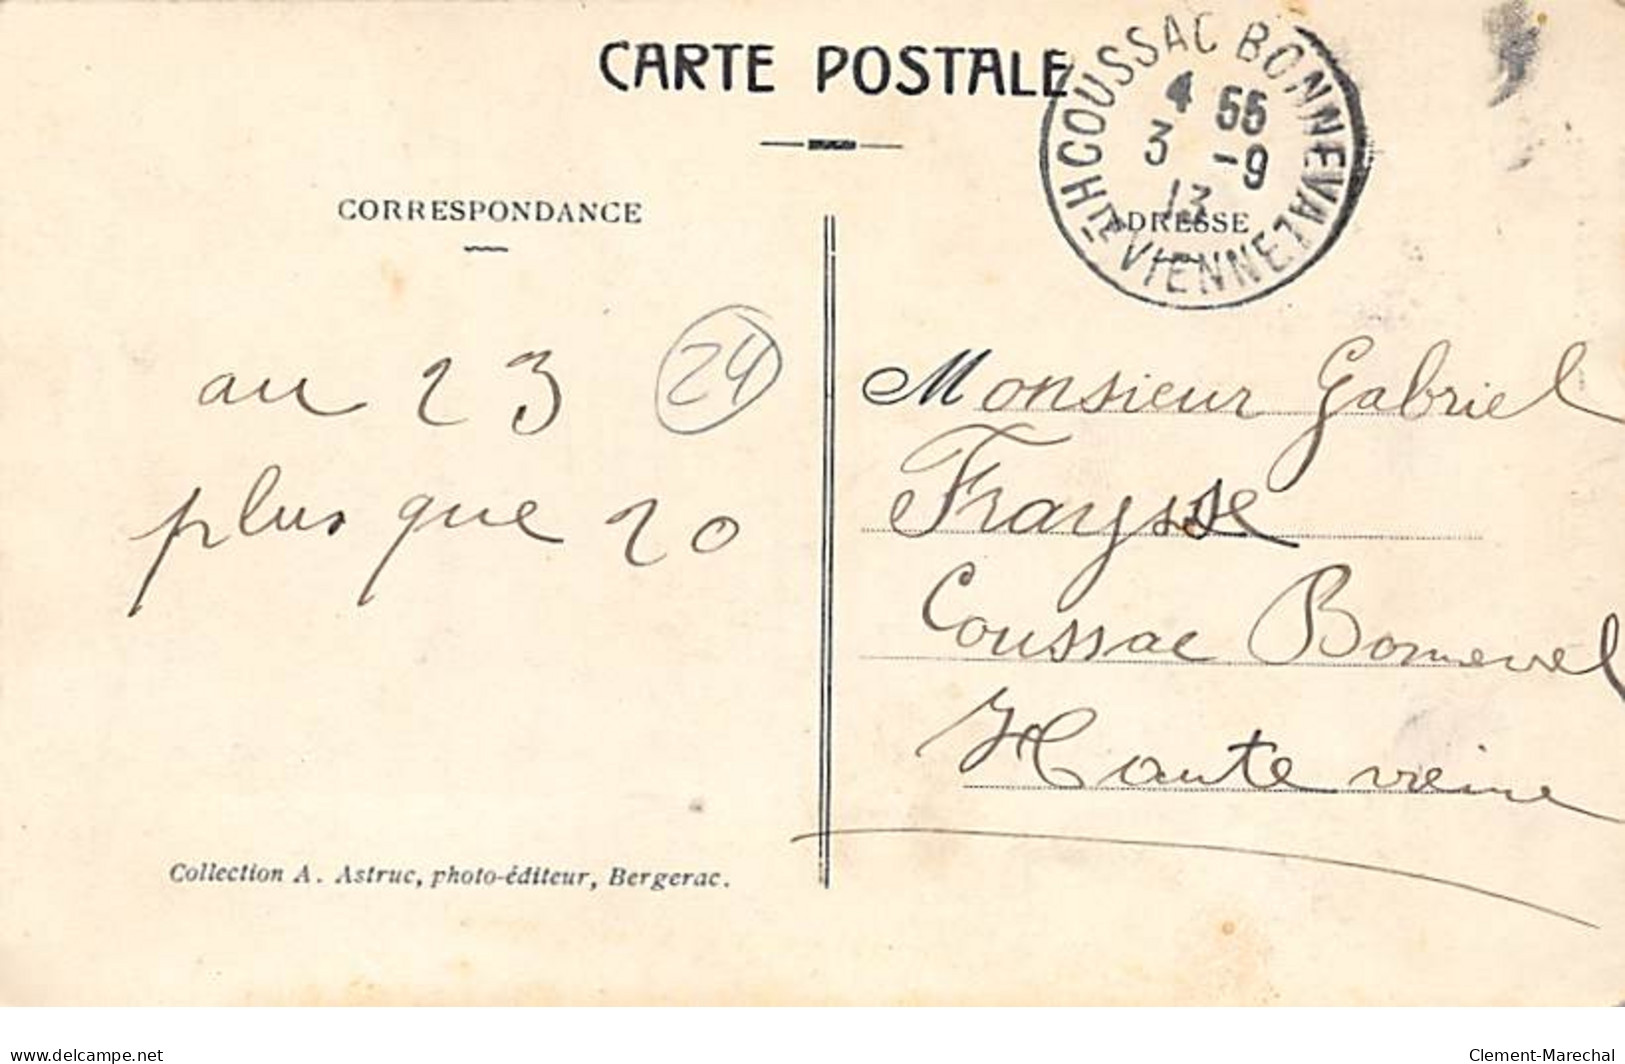 CARTE POSTALE
COUSSAC BONNEVAL
4 55
3 -9
13
Hte VIENNE
CORRESPONDANCE
ADRESSE
au 23
24
plus que 20
Monsieur Gabriel
Fraysse
Coussac Bonnevel
Haute vieine
Collection A. Astruc, photo-éditeur, Bergerac.
www.delcampe.net
Clement-Marechal